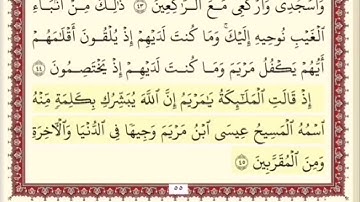 وَٱسْجُدِى وَٱرْكَعِى مَعَ ٱلرَّٰكِعِينَ ٤٣ ذَٰلِكَ مِنْ أَنۢبَآءِ
ٱلْغَيْبِ نُوحِيهِ إِلَيْكَ ۚ وَمَا كُنتَ لَدَيْهِمْ إِذْ يُلْقُونَ أَقْلَٰمَهُمْ
أَيُّهُمْ يَكْفُلُ مَرْيَمَ وَمَا كُنتَ لَدَيْهِمْ إِذْ يَخْتَصِمُونَ ٤٤
إِذْ قَالَتِ ٱلْمَلَٰٓئِكَةُ يَٰمَرْيَمُ إِنَّ ٱللَّهَ يُبَشِّرُكِ بِكَلِمَةٍ مِّنْهُ
ٱسْمُهُ ٱلْمَسِيحُ عِيسَى ٱبْنُ مَرْيَمَ وَجِيهًا فِى ٱلدُّنْيَا وَٱلْءَاخِرَةِ
وَمِنَ ٱلْمُقَرَّبِينَ ٤٥
٥٥